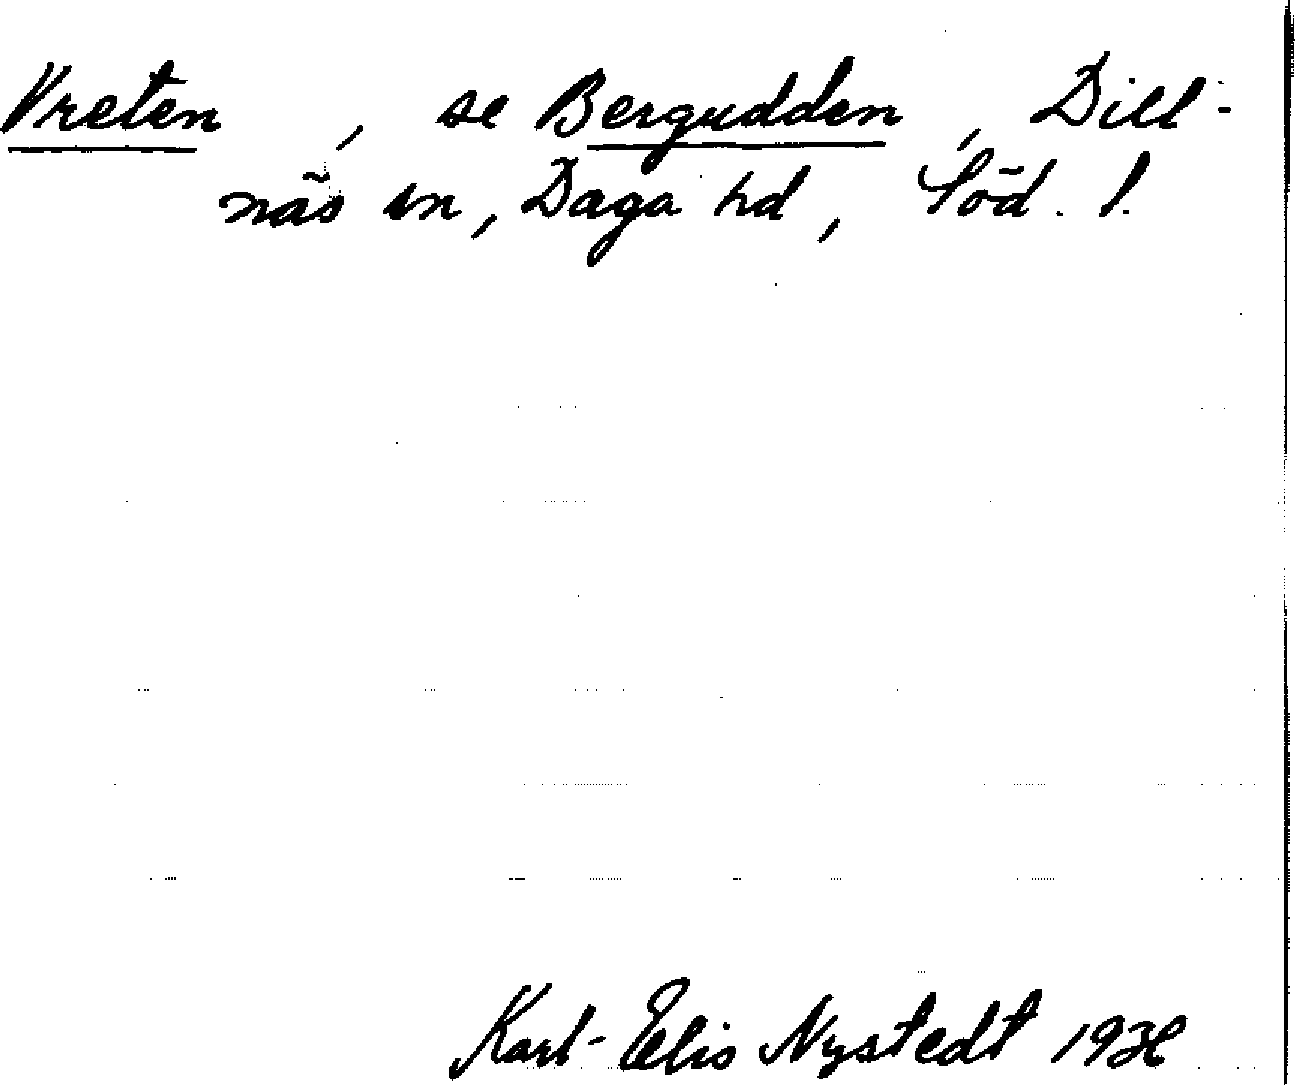 Vreten, se Bergudden, Dill-
näs sn, Daga hd, Söd. l.
Karl-Elis Nystedt 1938